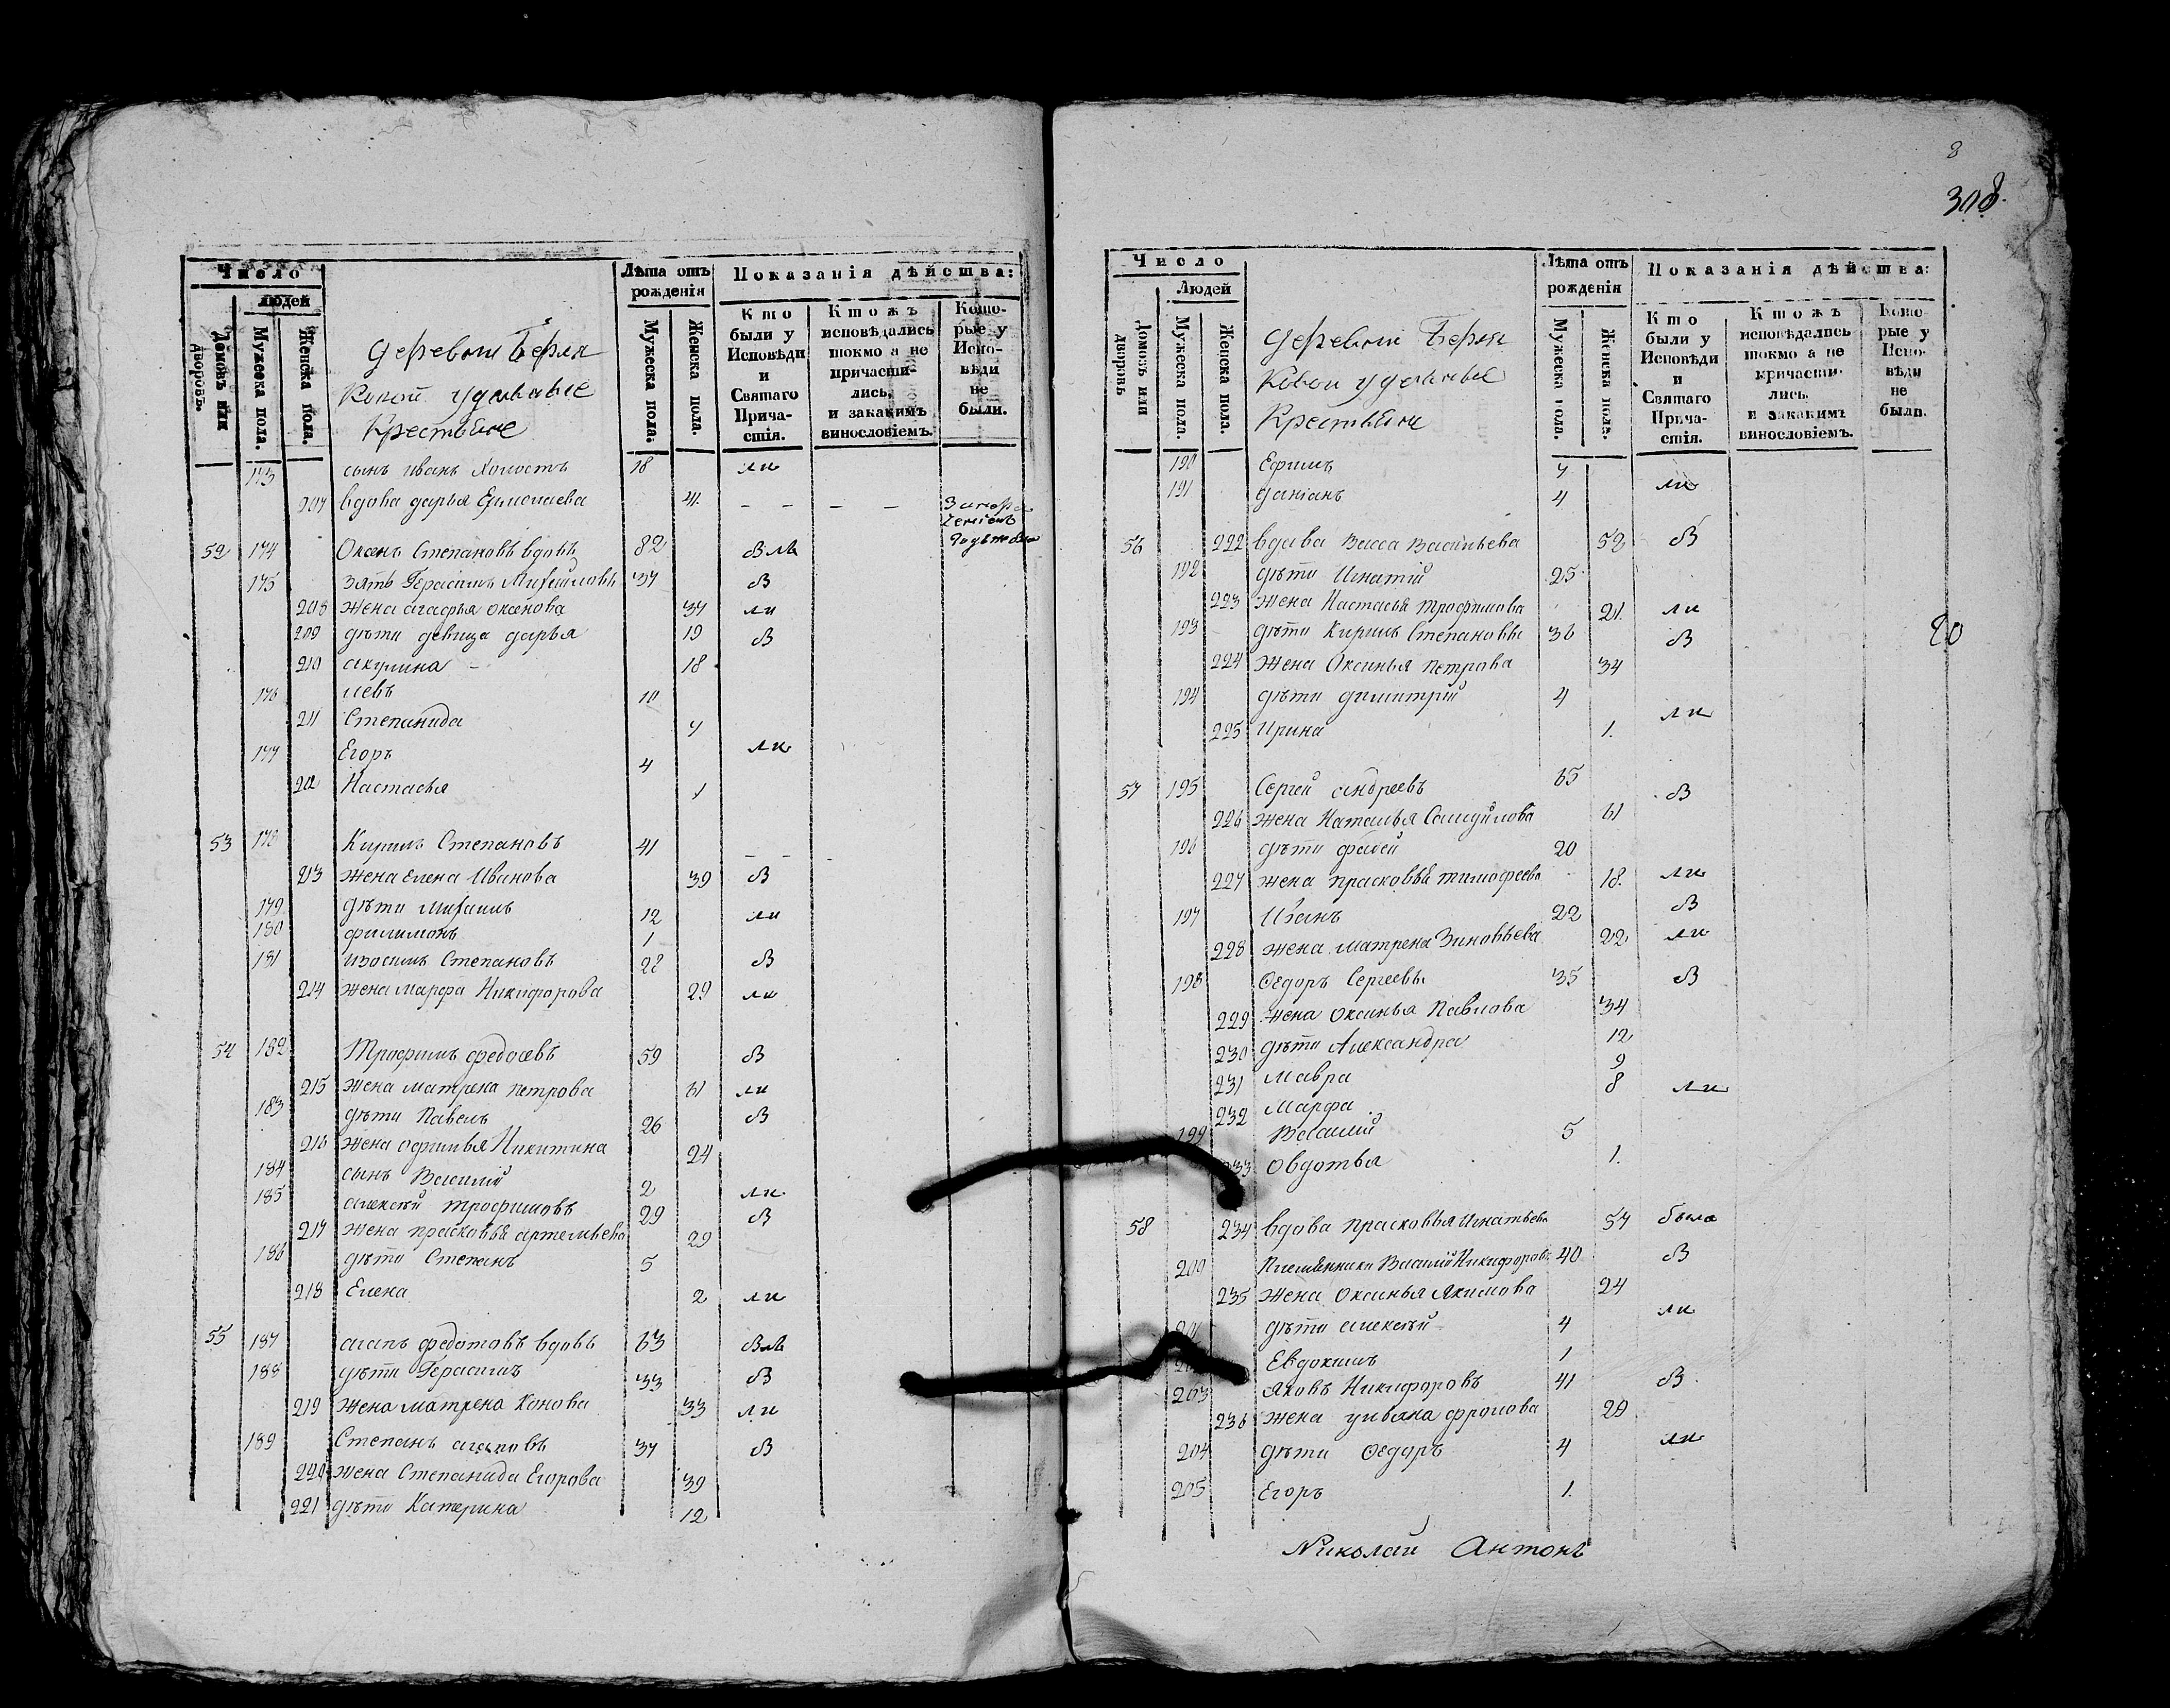 Число
людей
Домовъ или дворовъ.
Мужеска пола.
Женска пола.
Лѣта отъ рожденія
Мужеска пола.
Женска пола.
Показанія дѣйства:
Кто были у Исповѣди и Святаго Прича-стія.
Ктожъ исповѣдались токмо а не причасти-лись, и закакимъ винословіемъ.
Кото-рые у Испо-вѣди не были.
деревни
удельные
Крестьяне
173 сынъ иванъ холостъ 18 ли
207 вдова дарья 41
52 174 Степановъ вдовъ 82 в
175 зять Герасимъ Михайловъ 37 в
208 жена агафья 37 ли
209 дѣти девица дарья 19 в
210 акулина 18
176 левъ 10
211 Степанида 7
177 Егоръ 4 ли
212 Настасья 1
53 178 Кирилъ Степановъ 41
213 жена елена Иванова 39 в
179 дѣти михаилъ 12 ли
180 филимонъ 1
181 изосимъ Степановъ 28 в
214 жена марфа Никифорова 29 ли
54 182 Трофимъ федосевъ 59 в
215 жена матрена петрова 61 ли
183 дѣти Павелъ 26 в
216 жена офимья Никитина 24
184 сынъ Василий 2 ли
185 алексѣй трофимовъ 29 в
217 жена прасковья артемьева 29
186 дѣти Степанъ 5
218 Елена 2 ли
55 187 федотовъ вдовъ 63 в
188 дѣти Герасимъ 33 в
219 жена матрена Конова 33 ли
189 Степанъ 37 в
220 жена Степанида Егорова 39
221 дѣти Катерина 12
8
308.
Число
Людей
Домовъ или дворовъ
Мужеска пола.
Женска пола.
Лѣта отъ рожденія
Мужеска пола.
Женска пола.
Показанія дѣйства:
Кто были у Исповѣди и Святаго Прича-стія.
Ктожъ исповѣдались токмо а не причасти-лись, и закакимъ винословіемъ.
Кото-рые у Испо-вѣди не были.
деревни
удельные
Крестьяне
190 Ефимъ 7
191 4 ли
56 222 вдова Васса Васильева 52 в
192 дѣти Игнатій 25
223 жена Настасья трофимова 21. ли
193 дѣти Кирилъ Степановъ 36 в
224 жена Оксинья петрова 34
194 дѣти димитрій 4
225 Ирина 1. ли
57 195 Сергей андреевъ 65 в
226 жена Наталья Самуйлова 61
196 дѣти 20
227 жена прасковья тимофеева 18. ли
197 Иванъ 22 в
228 жена матрена Зиновьева 22 ли
198 Ѳедоръ Сергеевъ 35 в
229 жена Оксинья Павлова 34
230 дѣти Александра 12
231 Мавра 9
232 Марфа 8 ли
199 Василій 5
233 Овдотья 1.
58 234 вдова прасковья Игнатьева 57 была
200 Племянники Василій Никифоровъ 40 в
235 жена Оксинья Якимова 24
дѣти алексѣй 4 ли
Евдокимъ 1
203 Яковъ Никифоровъ 41 в
236 жена ульяна фролова 29
204 дѣти Ѳедоръ 4 ли
205 Егоръ 1.
Николай Антонъ